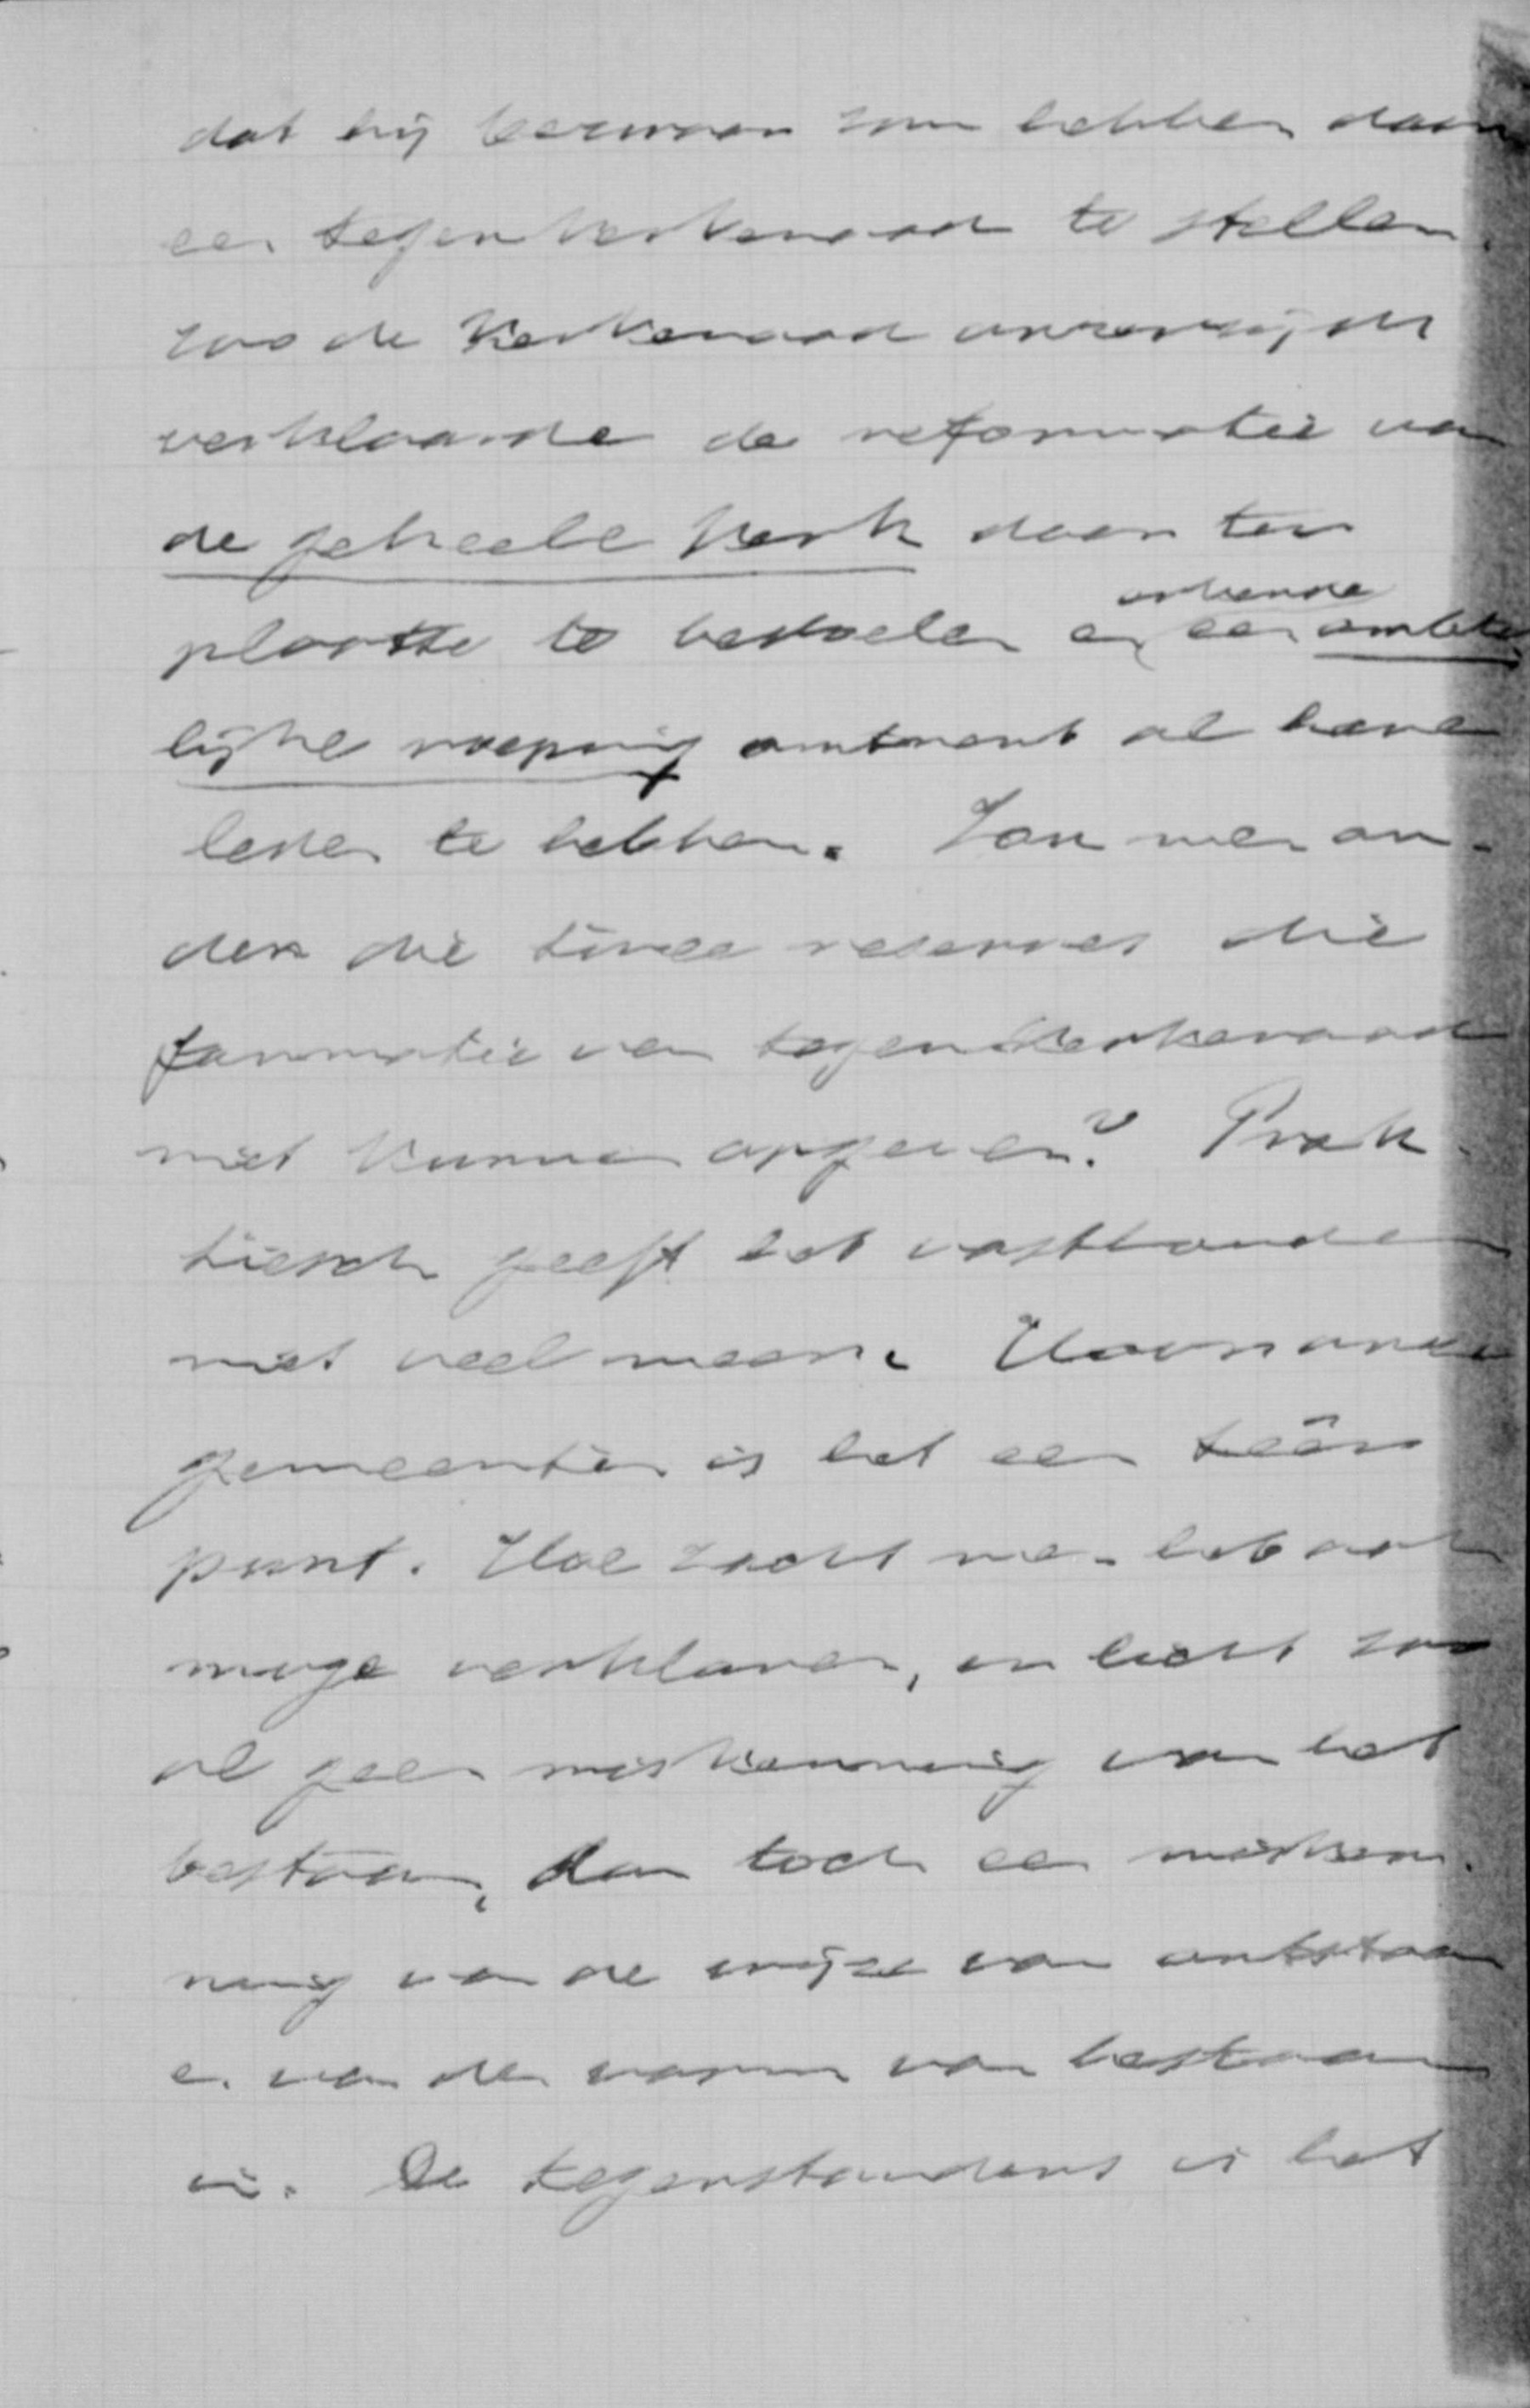 dat hij bezwaar zou hebben daar
een tegenkerkeraad te stellen.
zoo de Kerkeraad
verklaarde de reformatie van
de geheele Kerk daar ter
plaatse te bedoelen en een ambte
erkende
lijke roeping omtrent al hare
leden te hebben. Zou men on-
der die twee reserves die
formatie van tegenkerkeraad
niet kunnen opgeven? Prak-
tiesch geeft het vasthouden
niet veel meer. Voor onze
gemeenten is het een teêr
punt. Hoe zacht men het ook
moge verklaren, er licht zoo
al geen miskenning van het
bestaan, dan toch een misken-
ning van de wijze van ontstaan
en van den vorm van bestaan
in. De tegenstanders is het